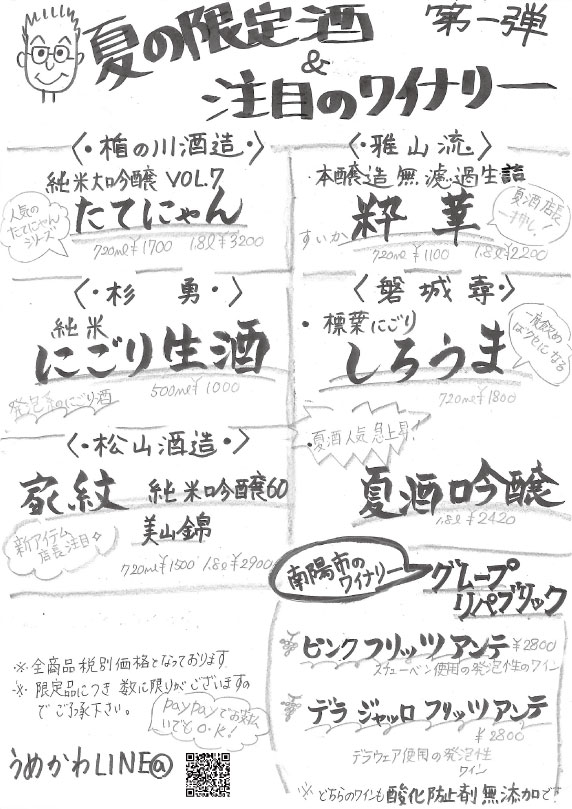 夏の限定酒 第一弾
&
注目のワイナリー
〈・楯の川酒造・〉
純米大吟醸 VOL.7
たてにゃん
人気の
たてにゃん
シリーズ
720ml ¥1700 1.8l ¥3200
〈・雅山流・〉
本醸造無濾過生詰
すいか 粋華
夏酒店長
一押し!
720ml ¥1100 1.8l ¥2200
〈・杉勇・〉
純米
にごり生酒
発泡系のにごり酒
500ml ¥1000
〈磐城壽・〉
・標葉にごり
しろうま
一度飲め
ばクセになる
720ml ¥1800
〈・松山酒造・〉
家紋 純米吟醸60
美山錦
新アイテム
店長注目☆
720ml ¥1500 1.8l ¥2900
・夏酒人気急上昇!
夏酒吟醸
1.8l ¥2420
南陽市の
ワイナリー
グレープ
リパブリック
ピンク フリッツァンテ ¥2800
スチューベン使用の発泡性のワイン
デラ ジャッロ フリッツァンテ
¥2800
デラウェア使用の発泡性
ワイン
※どちらのワインも酸化防止剤無添加です
※全商品税別価格となっております
※限定品につき数に限りがございますの
でご了承下さい。
PayPayでお支払
いでもO・K!
うめかわLINE@